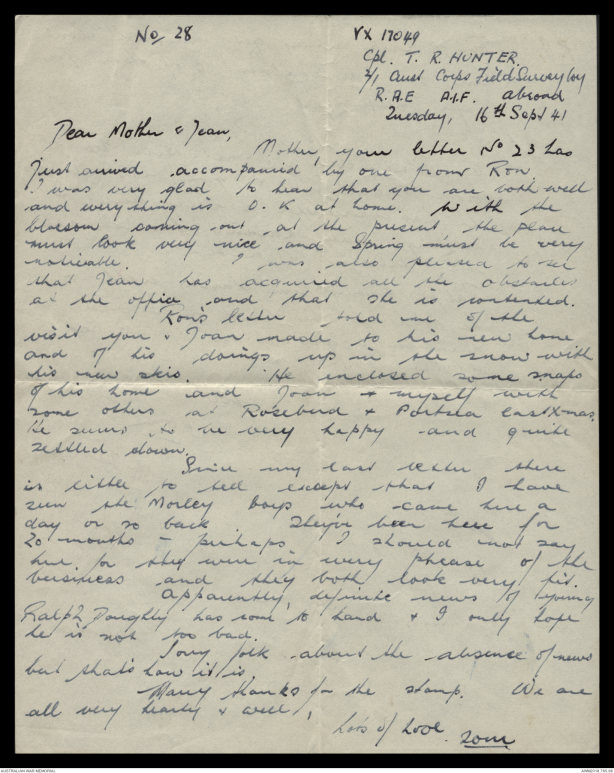 No/ 28
VX 17049
Cpl. T. R. HUNTER.
2/1 Aust Corps Field Survey Coy
R.A.E A.I.F. abroad
Tuesday, 16th Sept 41
Dear Mother & Jean,
Mother, your letter No 23 has
just arrived accompanied by one from Ron.
I was very glad to hear that you are both well
and everything is O.K at home. With the
blossom coming out at the present the place
must look very nice and Spring must be very
noticeable. I was also pleased to see
that Jean has acquired all the obstacles
at the office and that she is contented.
Ron's letter told me of the
visit you & Joan made to his new home
and of his doings up in the snow with
his new skis. He enclosed some snaps
of his home and Joan & myself with
some others at Rosebud & Portsea last Xmas.
He seems to be very happy and quite
settled down.
Since my last letter there
is little to tell except that I have
seen the Morley boys who came here a
day or so back. They've been here for
20 months - perhaps I should not say
here for they were in every phrase of the
business and they both look very fit.
Apparently, definite news of young
Ralph Doughty has come to hand & I only hope
he is not too bad.
Sorry folk about the absence of news
but that's how it is.
Many thanks for the stamp. We are
all very hearty & well!
Lots of Love
Tom
AUSTRALIAN WAR MEMORIAL